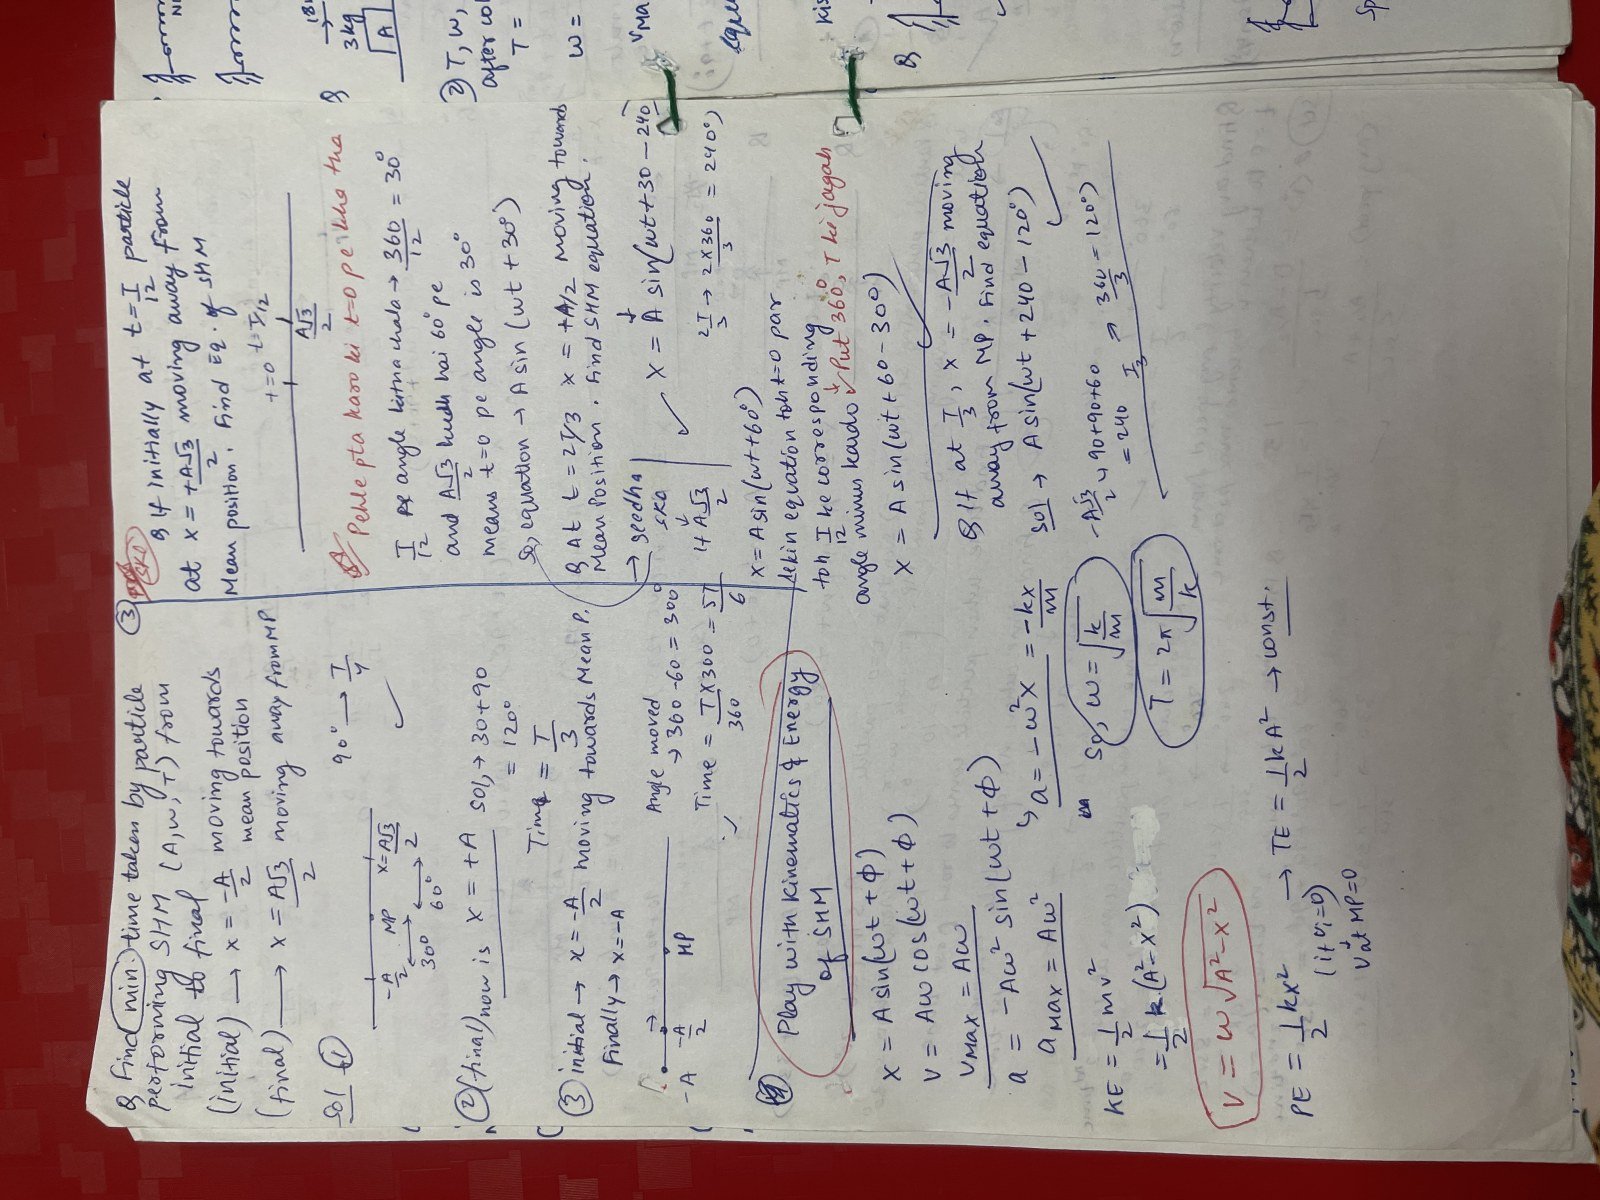 Q Find min. time taken by particle
performing SHM (A, w, T) from
initial to final
(initial) → x = -A/2 moving towards
mean position
(final) → x = A√3/2 moving away from MP
Sol ①
-A/2 MP x = A√3/2
30° 60°
90° → T/4
② (final) now is x = +A
Sol, → 30+90
= 120°
Time = T/3
③ initial → x = -A/2 moving towards Mean P.
Finally → x = -A
-A -A/2 MP
Angle moved
→ 360-60 = 300°
Time = T×300/360 = 5T/6
Play with Kinematics & Energy
of SHM
x = A sin(wt + φ)
v = Aw cos(wt + φ)
vmax = Aw
a = -Aw² sin(wt + φ)
amax = Aw²
↳ a = -w²x = -kx/m
So, w = √k/m
T = 2π√m/k
KE = 1/2 mv²
= 1/2 k(A²-x²)
V = w√A²-x²
PE = 1/2 kx² → TE = 1/2 kA² → const.
(if Ui=0)
v at MP=0
③ SKA
Q If initially at t = T/12 particle
at x = +A√3/2 moving away from
Mean position. Find Eq. of SHM
t=0 t=T/12
A√3/2
Pehle pta karo ki t=0 pe kkha tha
T/12 pe angle kitna chala → 360/12 = 30°
and A√3/2 khudh hai 60° pe
means t=0 pe angle is 30°
So, equation → A sin(wt + 30°)
Q At t = 2T/3 x = +A/2 moving towards
Mean Position. Find SHM equation.
→ seedha
SKA
x = A sin(wt+30-240)
2T/3 → 2×360/3 = 240°)
+A√3/2
x = A sin(wt+60°)
lekin equation toh t=0 par
toh T/12 ke corresponding
angle minus kardo Put 360°, T ki jagah
x = A sin(wt + 60-30°)
Q If at T/3, x = -A√3/2 moving
away from MP. Find equation
Sol → A sin(wt + 240-120°)
-A√3/2 ↳ 90+90+60
= 240
T/3 → 360/3 = 120°)
18
3kg
A
② T, w,
after col
T =
w =
VMA
equ
kis
Q
Sp